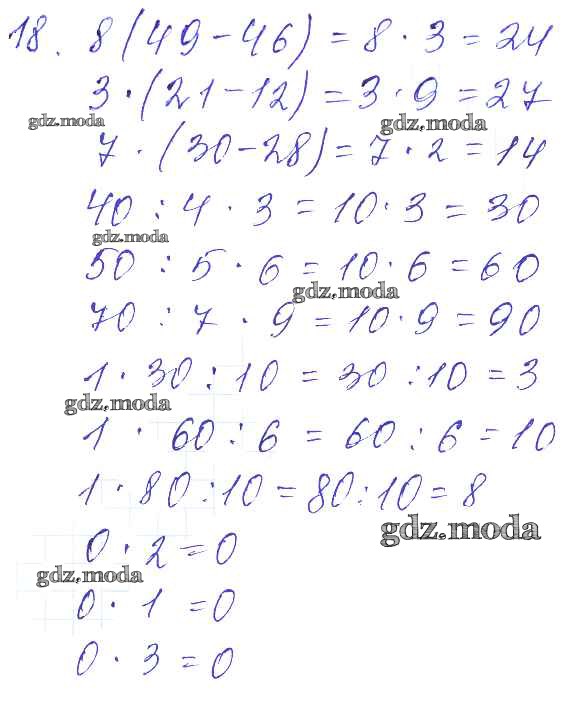 18. 8 (49 - 46) = 8 · 3 = 24
3 · (21 - 12) = 3 · 9 = 27
gdz.moda gdz.moda
7 · (30 - 28) = 7 · 2 = 14
40 : 4 · 3 = 10 · 3 = 30
gdz.moda
50 : 5 · 6 = 10 · 6 = 60
gdz.moda
70 : 7 · 9 = 10 · 9 = 90
1 · 30 : 10 = 30 : 10 = 3
gdz.moda
1 · 60 : 6 = 60 : 6 = 10
1 · 80 : 10 = 80 : 10 = 8
gdz.moda
0 · 2 = 0
gdz.moda
0 · 1 = 0
0 · 3 = 0